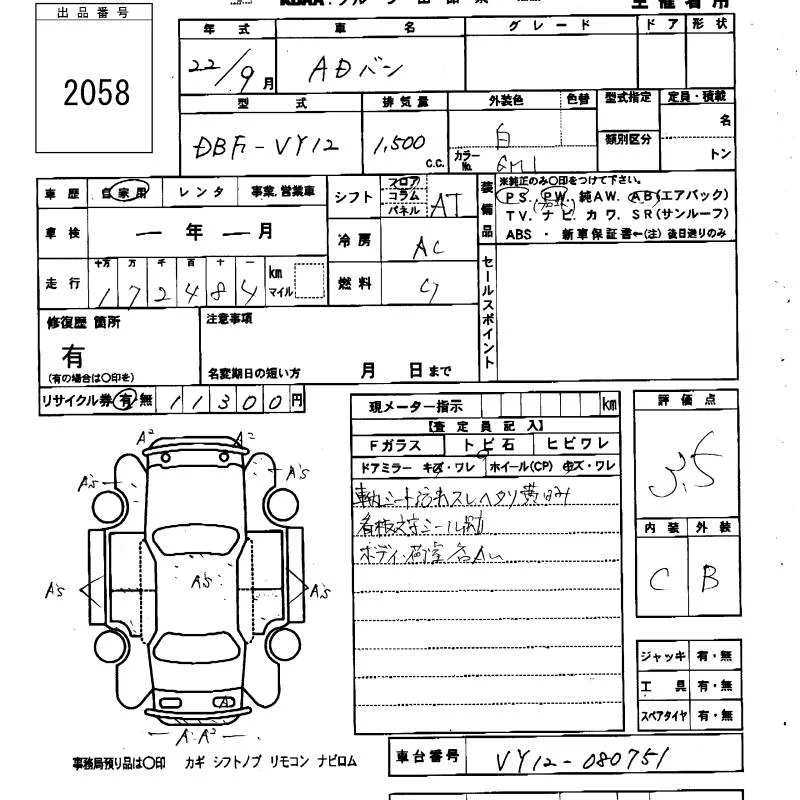 出品番号
2058
年式 車名 グレード ドア 形状
22/9月 ADバン
型式 排気量 外装色 色替 型式指定 定員・積載
DBF-VY12 1,500 c.c. 白 名
カラーNo. 類別区分 トン
車歴 自家用 レンタ 事業.営業車
シフト フロア コラム パネル AT
装備品
※純正のみ〇印をつけて下さい。
PS. PW. 純AW. AB(エアバック)
TV. ナビ. カワ. SR(サンルーフ)
ABS ・ 新車保証書←(注) 後日送りのみ
車検 ー年ー月
冷房 AC
走行 十万 万 千 百 十 一 km マイル
172484
燃料 G
セールスポイント
修復歴 箇所
有
(有の場合は〇印を)
注意事項
名変期日の短い方 月 日まで
リサイクル券 有・無 11300円
現メーター指示 km
【査定員記入】
Fガラス トビ石 ヒビワレ
ドアミラー キズ・ワレ ホイール(CP) キズ・ワレ
車内シート汚れスレヘタリ
看板文字シール跡
ボディ・荷室各A
評価点
3.5
内装 外装
C B
A² A²
A's A's
A's A's A's
A
A・A²
ジャッキ 有・無
工具 有・無
スペアタイヤ 有・無
事務局預り品は〇印 カギ シフトノブ リモコン ナビロム
車台番号 VY12-080751